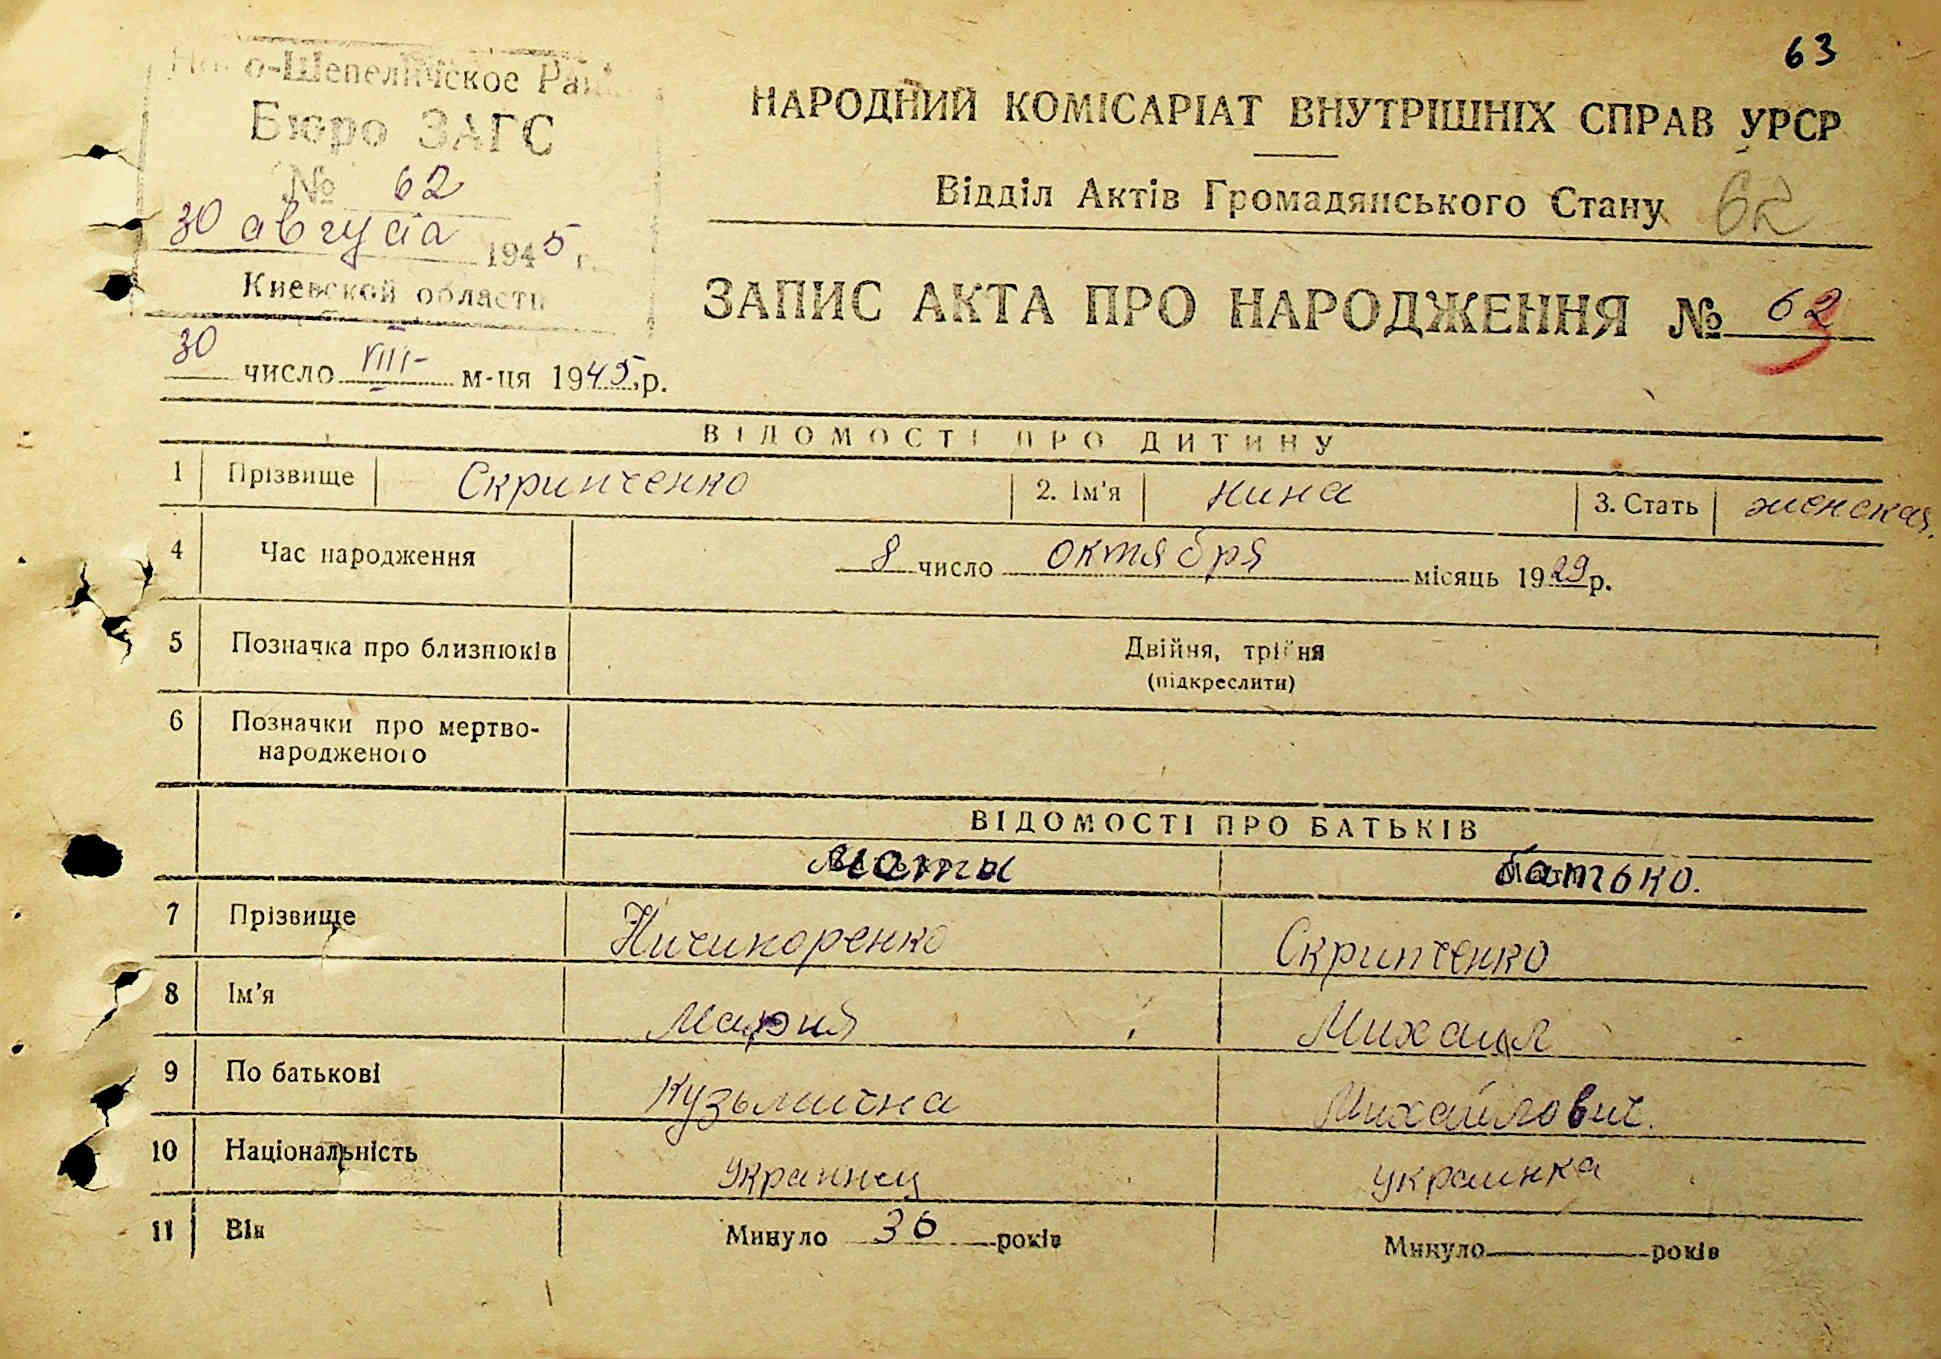 63
Ново-Шепеличское Рай.
Бюро ЗАГС
№ 62
30 августа 1945 г.
Киевской области
30 число VIII м-ця 1945 р.
НАРОДНИЙ КОМІСАРІАТ ВНУТРІШНІХ СПРАВ УРСР
Відділ Актів Громадянського Стану 62
ЗАПИС АКТА ПРО НАРОДЖЕННЯ № 62
ВІДОМОСТІ ПРО ДИТИНУ
1 Прізвище Скрипченко 2. Ім'я Нина 3. Стать женская.
4 Час народження 8 число октября місяць 1929 р.
5 Позначка про близнюків Двійня, трійня
(підкреслити)
6 Позначки про мертво-
народженого
ВІДОМОСТІ ПРО БАТЬКІВ
мати батько.
7 Прізвище Ничипоренко Скрипченко
8 Ім'я Мария Михаил
9 По батькові Кузьмична Михайлович.
10 Національність Украинец украинка
11 Вік Минуло 36 років Минуло років